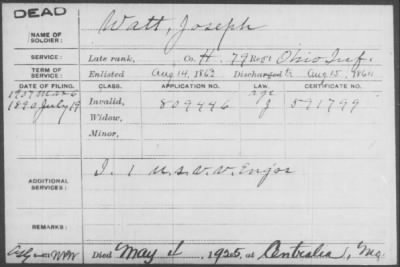 DEAD
Watt, Joseph
NAME OF
SOLDIER:
SERVICE: Late rank, Co. H. 79 Reg't Ohio Inf.
TERM OF
SERVICE: Enlisted Aug 14, 1862 Discharged Aug 15, 1864
DATE OF FILING. CLASS. APPLICATION NO. LAW. CERTIFICATE NO.
1907 Mar 6 Age
1890 July 19 Invalid, 809446 J 591799
Widow,
Minor,
ADDITIONAL
SERVICES: I. 1 U.S.V.V. Engrs
REMARKS:
Died May 1925, at Centralia, Mo.